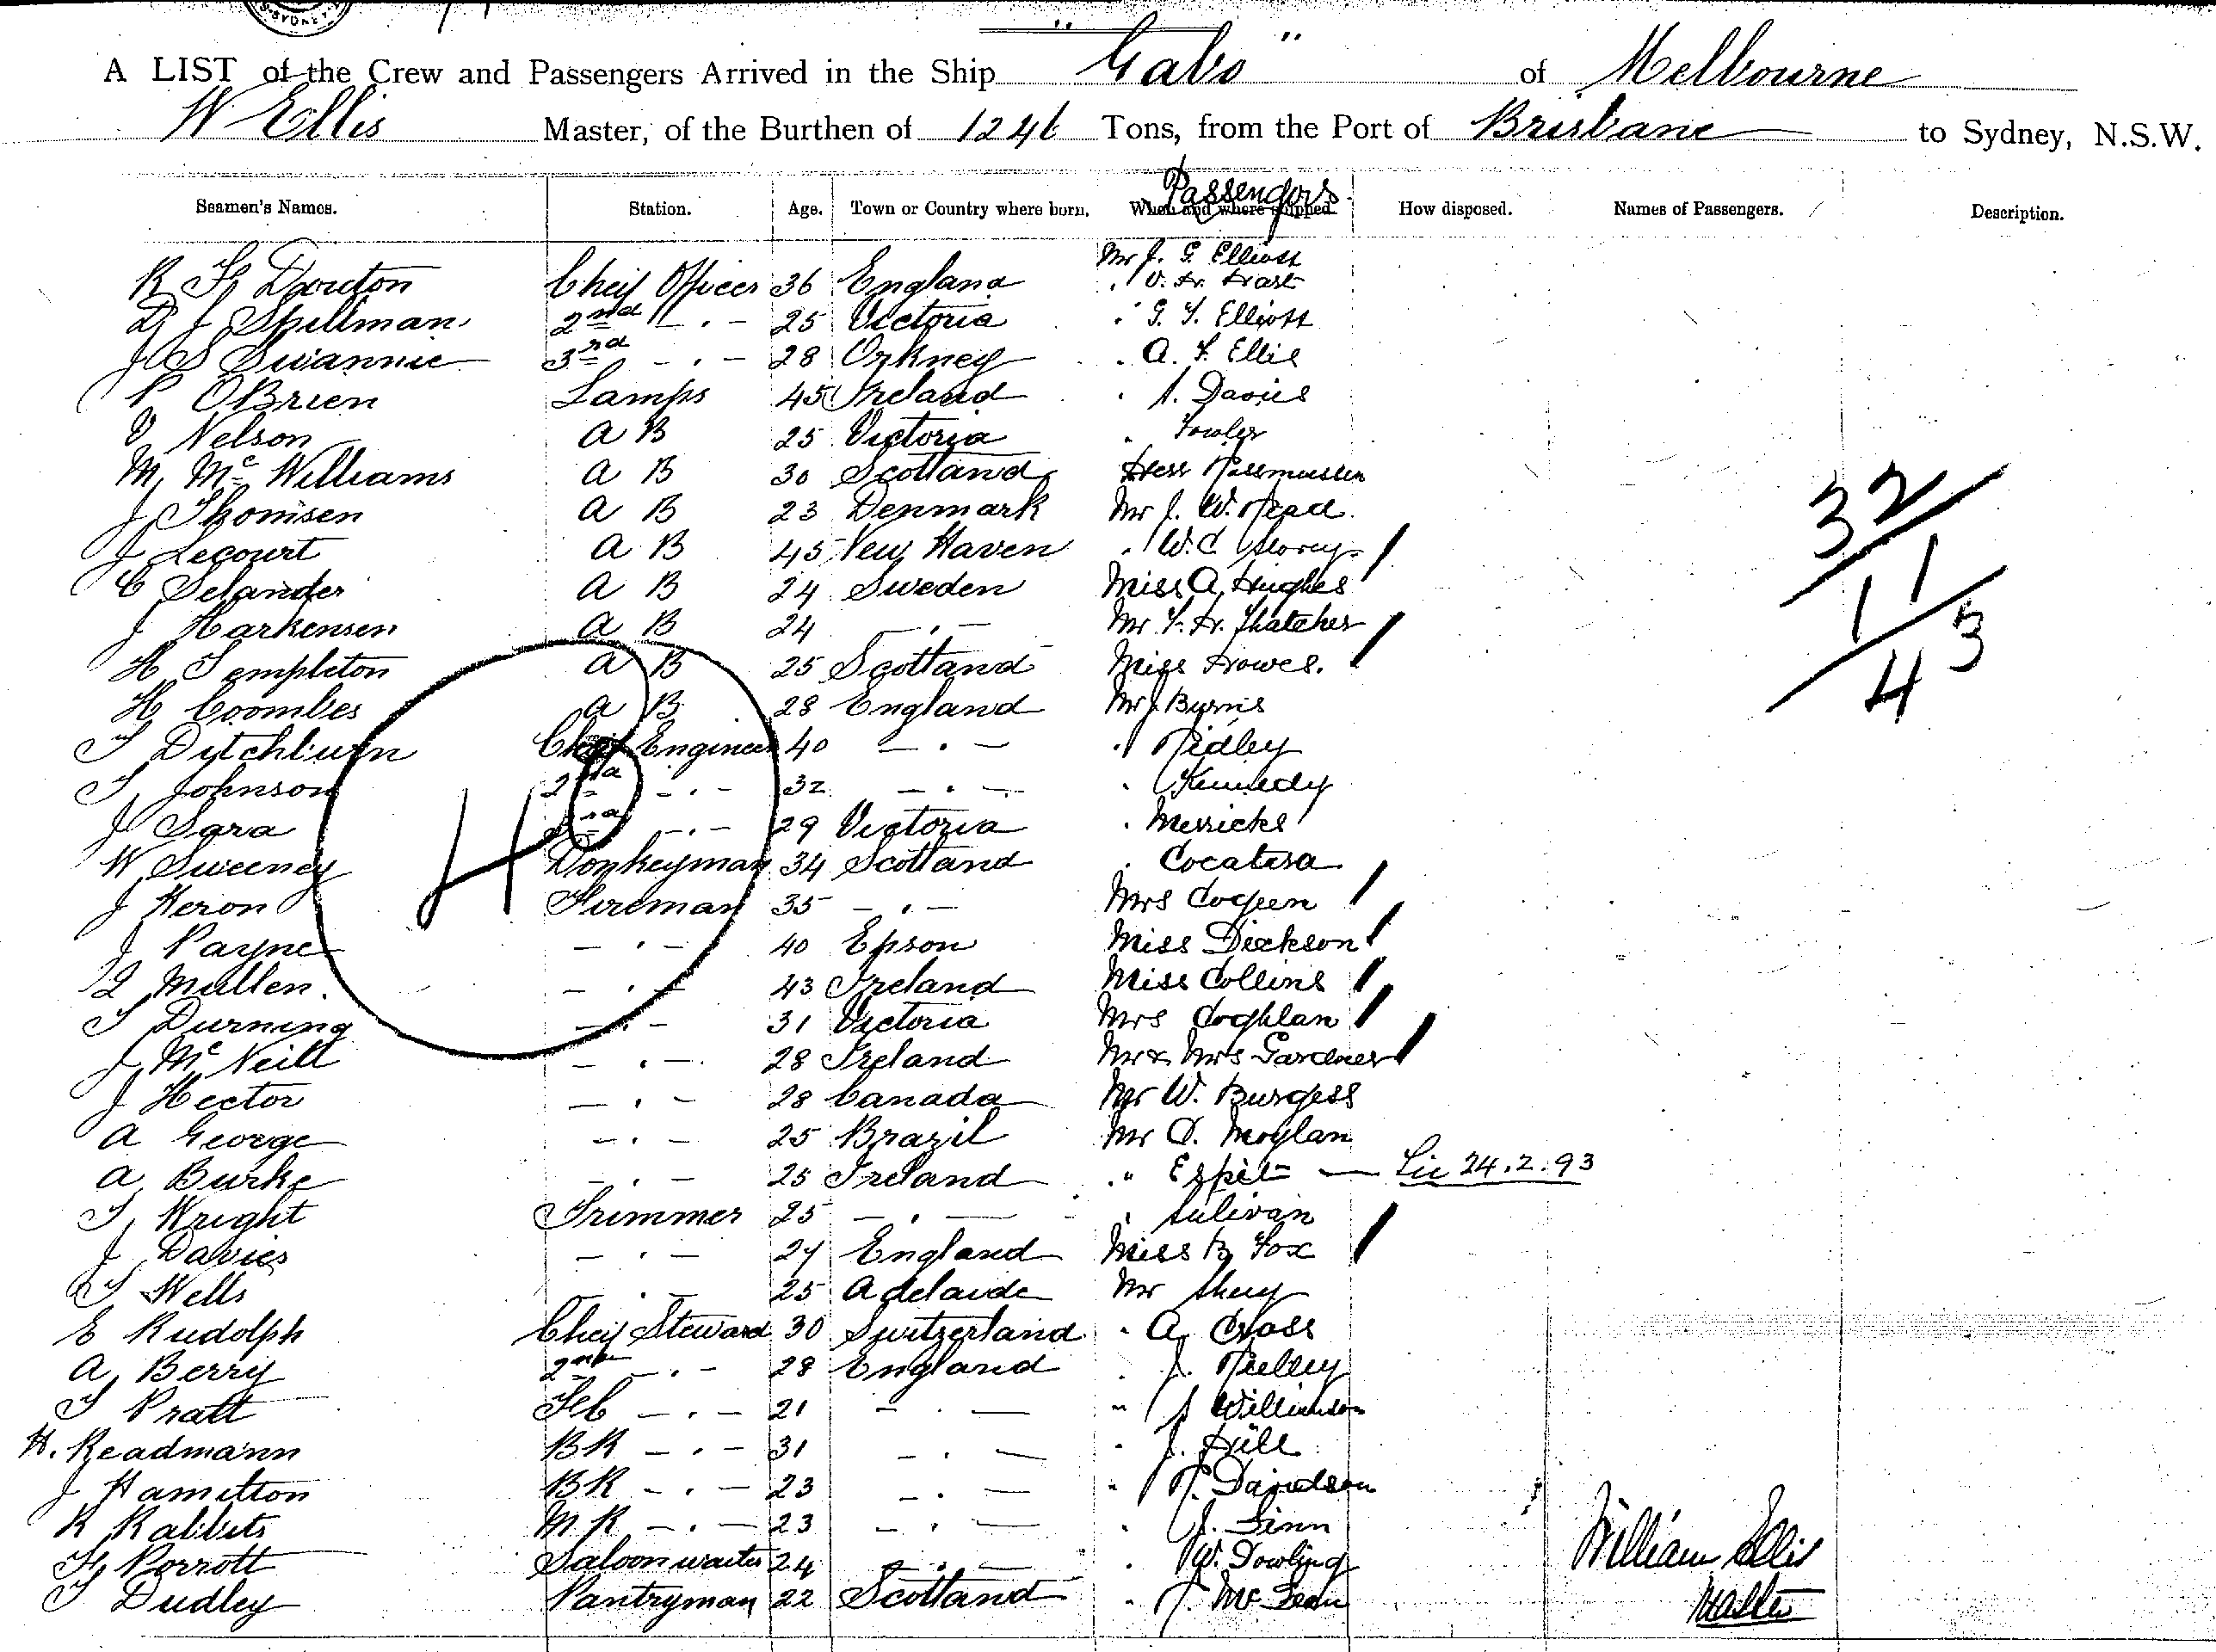 SYDNEY
A LIST of the Crew and Passengers Arrived in the Ship "Gabo" of Melbourne
W Ellis Master, of the Burthen of 1246 Tons, from the Port of Brisbane to Sydney, N.S.W.
Passengers
Seamen's Names. Station. Age. Town or Country where born. When and where shipped How disposed. Names of Passengers. Description.
Mr J. G. Elliott
R Douton Cheif Officer 36 England
D J Spillman 2nd - . - 25 Victoria " G. Y. Elliott
J S Swannie 3rd - . - 28 Orkney . A. Y. Ellis
P OBrien Lamps 45 Ireland . Davies
V Nelson A B 25 Victoria " Fowler
M McWilliams A B 30 Scotland Herr Rasmussen
J Thomsen A B 23 Denmark Mr J. W. Mead.
J Lecourt A B 45 New Haven . W. C. Storey /
C Selander A B 24 Sweden Miss A Hughes
J Harkensen A B 24 - . - Mr Thatcher /
H Templeton A B 25 Scotland Miss Howes.
H Coombes A B 28 England Mr J Byrnis
T Ditchburn Cheif Engineer 40 - . - . Ridley
T Johnson 2nd - . - 32 - . - . Kennedy
J Sara 3rd - . - 29 Victoria . Merricks
W Sweeney Donkeyman 34 Scotland . /
J Heron Fireman 35 - . - Mrs /
J Payne - . - 40 Epson Miss Dickson /
Mullen. - . - 43 Ireland Miss Collins /
T Durning - . - 31 Victoria Mrs Coghlan /
J McNeill - . - 28 Ireland Mr & Mrs Gardner /
J Hector - . - 28 Canada Mr W. Burgess
A George - . - 25 Brazil Mr D. Moylan
A Burke - . - 25 Ireland " Espèt — Lie 24.2.93
T Wright Trimmer 25 - . - . Sulivan
J Davies - . - 27 England Miss B Fox /
T Wells - . - 25 Adelaide Mr
E Rudolph Cheif Steward 30 Switzerland . A. Cross
A Berry 2nd - . - 28 England . J. Reilley
T Pratt F&C - . - 21 - . - " Williamson
H. Readmann BR - . - 31 - . - . J. Hill
J Hamilton BR - . - 23 - . - . R. Davidson
R Rabbits M R - . - 23 - . - . J. Finn
Porrott Saloon waiter 24 - . - . W. Dowling
T Dudley Pantryman 22 Scotland
32
11
43
William Ellis
Master